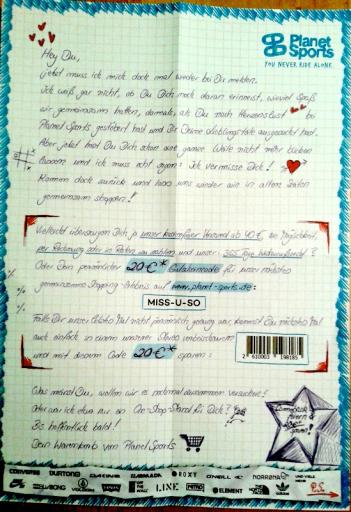 Planet
Sports
YOU NEVER RIDE ALONE.
Hey Du,
jetzt muss ich mich doch mal wieder bei Dir melden.
Ich weiß gar nicht, ob Du Dich noch daran erinnerst, wieviel Spaß
wir gemeinsam hatten, damals, als Du nach Herzenslust bei
Planet Sports gestöbert hast und Dir Deine Lieblingsteile ausgesucht hast.
Aber jetzt hast Du Dich schon eine ganze Weile nicht mehr blicken
lassen und ich muss echt sagen: Ich vermisse Dich!
Komm doch zurück und lass uns wieder wie in alten Zeiten
gemeinsam shoppen!
Vielleicht überzeugen Dich ja unser kostenfreier Versand ab 40 €, die Möglichkeit,
per Rechnung oder in Raten zu zahlen und unser 365 Tage Widerrufsrecht?
Oder Dein persönlicher 20 €* Gutscheincode für unser nächstes
gemeinsames Shopping-Erlebnis auf www.planet-sports.de:
MISS-U-SO
Falls Dir unser letztes Mal nicht persönlich genug war, kannst Du nächstes Mal
auch einfach in einem unserer Stores vorbeischauen
und mit diesem Code 20 €* sparen:
2 610003 198185
Was meinst Du, wollen wir es nochmal zusammen versuchen?
Oder war ich etwa nur ein One-Stop-Stand für Dich?
Bis hoffentlich bald!
Dein Warenkorb von Planet Sports
CONVERSE BURTON DAKINE ARMADA ROXY O'NEILL NORRØNA UND VIELE MEHR
BILLABONG VOLCOM VANS LINE NITRO ELEMENT adidas
P.S.